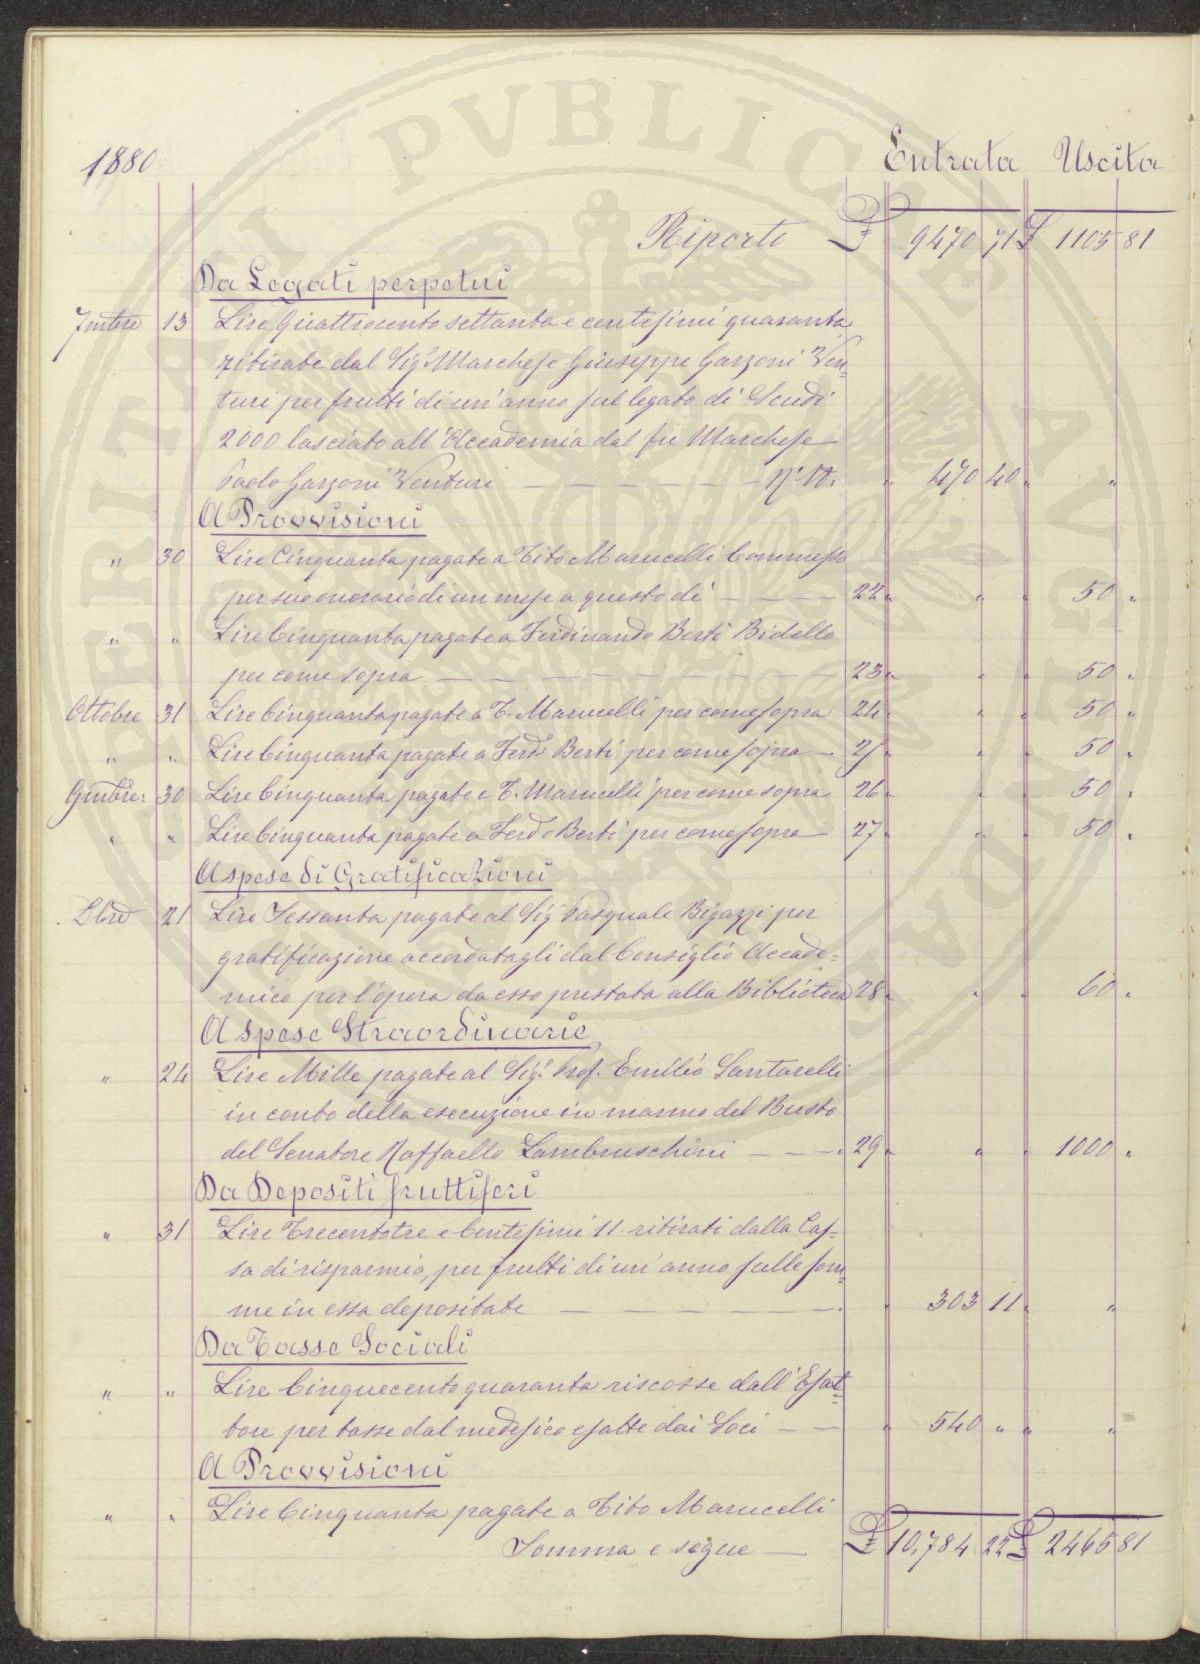 1880 Entrata Uscita
Riporto £ 9470 71 £ 1105 81
Da Legati perpetui
7mbre 13 Lire Quattrocento settanta e centesimi quaranta
ritirate dal Sig. Marchese Giuseppe Garzoni Ven-
turi per frutti di un'anno sul legato di Scudi
2000 lasciato all'Accademia dal fu Marchese
Paolo Garzoni Venturi — — — — — — " 470 40 " "
A Provvisioni
" 30 Lire Cinquanta pagate a Tito Marucelli Commesso
per suo onorario di un mese a questo dì — — — — 22 " " " 50 "
" " Lire Cinquanta pagate a Ferdinando Berti Bidello
per come sopra — — — — — — — — — 23 " " " 50 "
Ottobre 31 Lire Cinquanta pagate a T. Marucelli per come sopra 24 " " " 50 "
" " Lire Cinquanta pagate a Ferdo Berti per come sopra — 25 " " " 50 "
9mbre: 30 Lire Cinquanta pagate a T. Marucelli per come sopra 26 " " " 50 "
" " Lire Cinquanta pagate a Ferdo Berti per come sopra — 27 " " " 50 "
A spese di Gratificazioni
Xbre 21 Lire Sessanta pagate al Sig. Pasquale Bigazzi per
gratificazione accordatagli dal Consiglio Accade-
mico per l'opera da esso prestata alla Biblioteca 28 " " " 60 "
A spese Straordinarie
" 24 Lire Mille pagate al Sig. Prof. Emilio Santarelli
in conto della esecuzione in marmo del Busto
del Senatore Raffaello Lambruschini — — — 29 " " " 1000 "
Da Depositi fruttiferi
" 31 Lire Trecentotre e Centesimi 11 ritirati dalla Cas-
sa di risparmio, per frutti di un'anno sulle som-
me in essa depositate — — — — — — " 303 11 " "
Da Tasse Sociali
" " Lire Cinquecento quaranta riscosse dall'Esat-
tore per tasse dal medesimo esatte dai Soci — — " 540 " " "
A Provvisioni
" " Lire Cinquanta pagate a Tito Marucelli
Somma e segue — £ 10,784 22 £ 2465 81
PERITATI PVBLICAE AVGENDAE